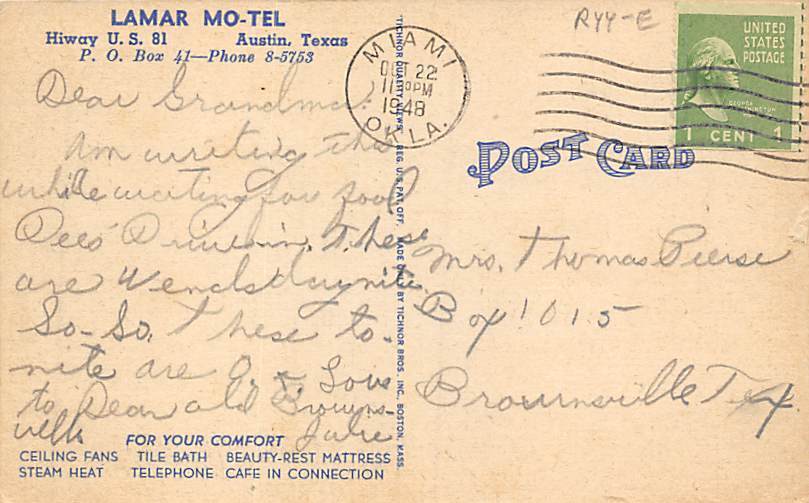 LAMAR MO-TEL
Hiway U. S. 81 Austin, Texas
P. O. Box 41—Phone 8-5753
Dear Grandma:
Am writing this
while waiting for food
Dees' Drive in. These
are Wendsday nite.
So-So. These to-
nite are O. K. Love
to Dear old Browns-
ville
Julie
FOR YOUR COMFORT
CEILING FANS TILE BATH BEAUTY-REST MATTRESS
STEAM HEAT TELEPHONE CAFE IN CONNECTION
"TICHNOR QUALITY VIEWS" REG. U. S. PAT. OFF. MADE ONLY BY TICHNOR BROS. INC., BOSTON, MASS.
MIAMI
OCT 22
1948
OKLA.
R44-E
UNITED
STATES
POSTAGE
GEORGE
WASHINGTON
1 CENT 1
POST CARD
Mrs. Thomas Pierse
Box 1015
Brownsville Tex